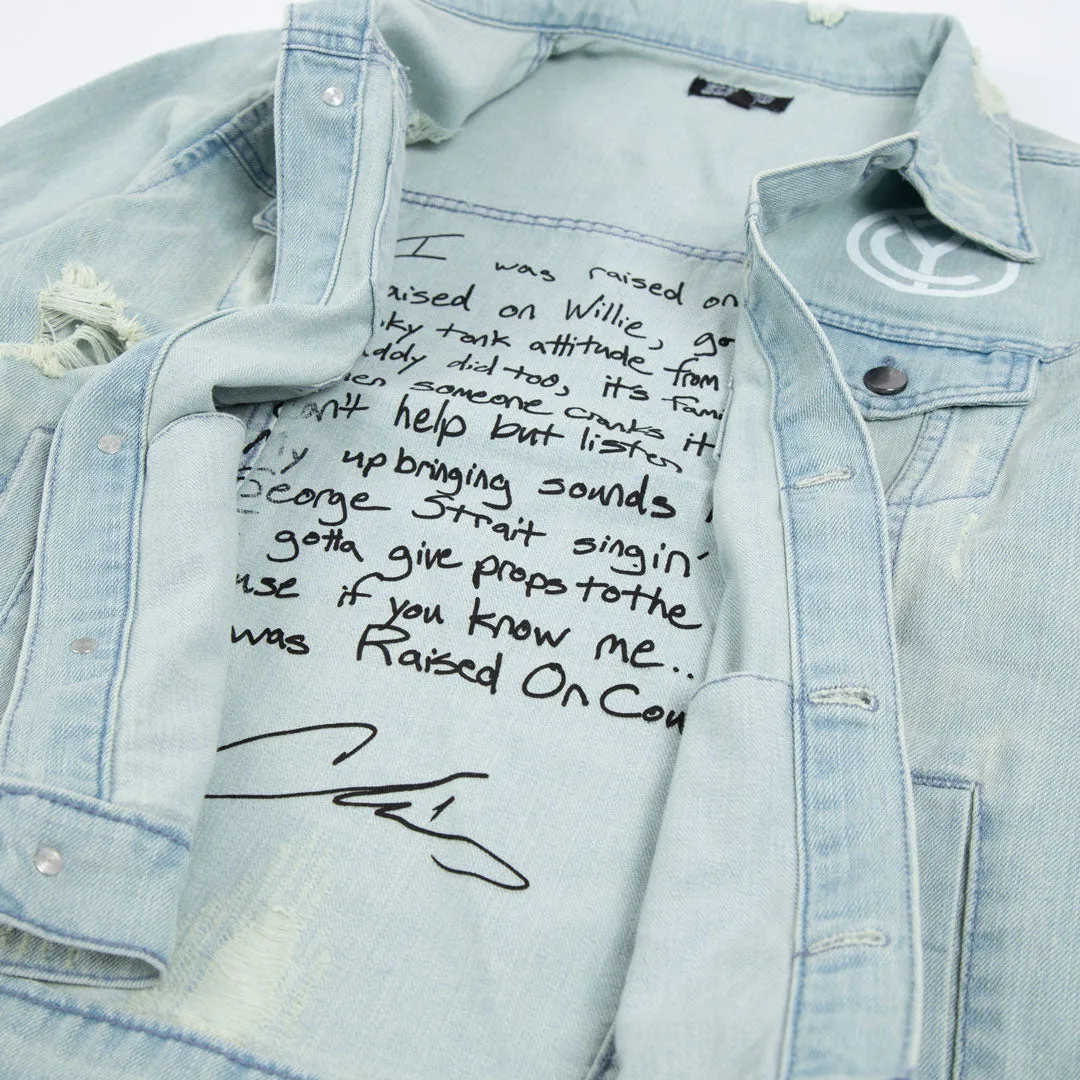 I was raised on
aised on Willie, go
ky tonk attitude from
addy did too, it's fami
en someone cranks it
an't help but listen
My upbringing sounds
George Strait singin'
gotta give props to the
use if you know me...
was Raised On Cou
CY